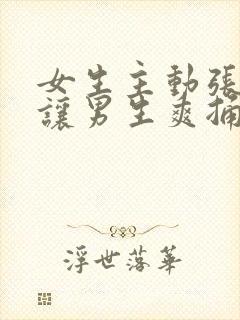 女生主動張
讓男生爽捅
浮世落華